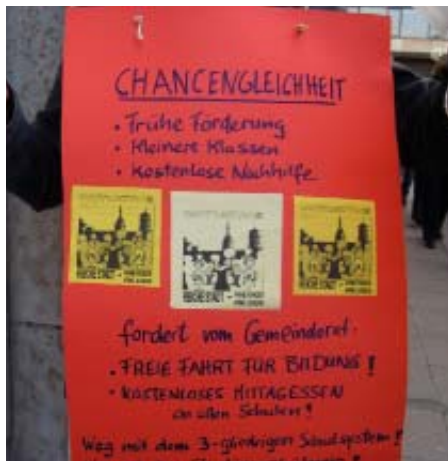 CHANCENGLEICHHEIT
• Frühe Förderung
• Kleinere Klassen
• Kostenlose Nachhilfe
REICHE STADT –
REICHE STADT –
REICHE STADT –
fordert vom Gemeinderat:
• FREIE FAHRT FÜR BILDUNG!
• KOSTENLOSES MITTAGESSEN
an allen Schulen!
Weg mit dem 3-gliedrigen Schulsystem!